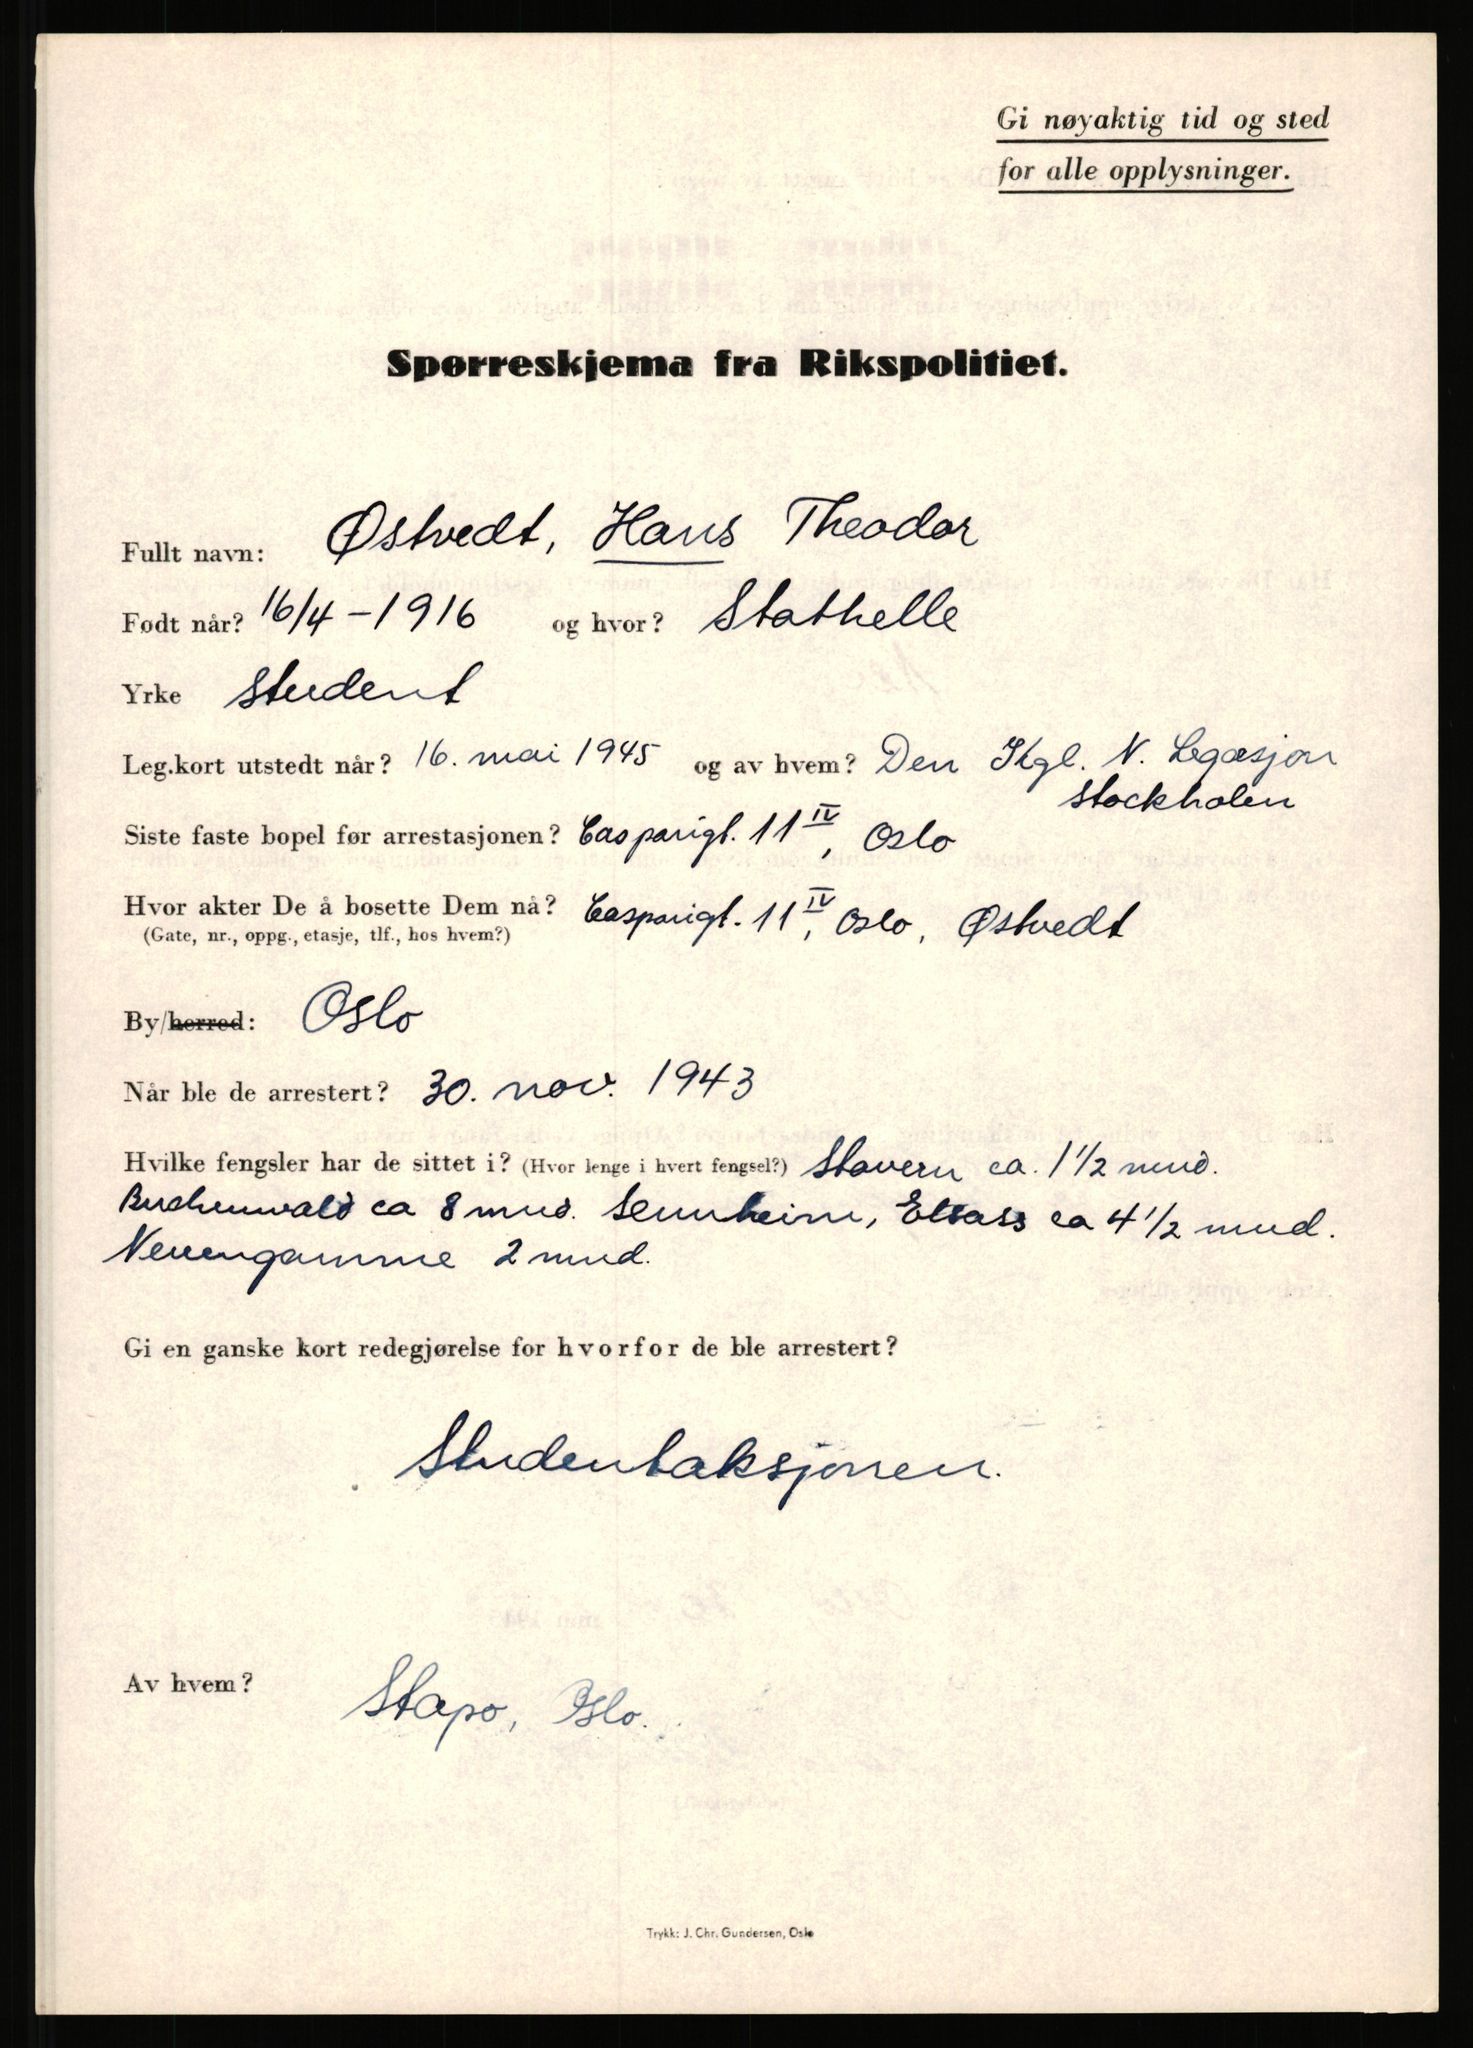 Gi nøyaktig tid og sted
for alle opplysninger.
Spørreskjema fra Rikspolitiet.
Fullt navn: Østvedt, Hans Theodor
Født når? 16/4 – 1916 og hvor? Stathelle
Yrke student
Leg.kort utstedt når? 16. mai 1945 og av hvem? Den Kgl. N. Legasjon
Stockholm
Siste faste bopel før arrestasjonen? Casparigt. 11 IV, Oslo
Hvor akter De å bosette Dem nå? Casparigt. 11 IV, Oslo, Østvedt
(Gate, nr., oppg., etasje, tlf., hos hvem?)
By/herred: Oslo
Når ble de arrestert? 30. nov. 1943
Hvilke fengsler har de sittet i? (Hvor lenge i hvert fengsel?) Stavern ca. 1 1/2 mnd.
Buchenwald ca 8 mnd. Sennheim, Elsass ca 4 1/2 mnd.
Neuengamme 2 mnd.
Gi en ganske kort redegjørelse for hvorfor de ble arrestert?
Studentaksjonen.
Av hvem? Stapo, Oslo.
Trykk: J. Chr. Gundersen, Oslo